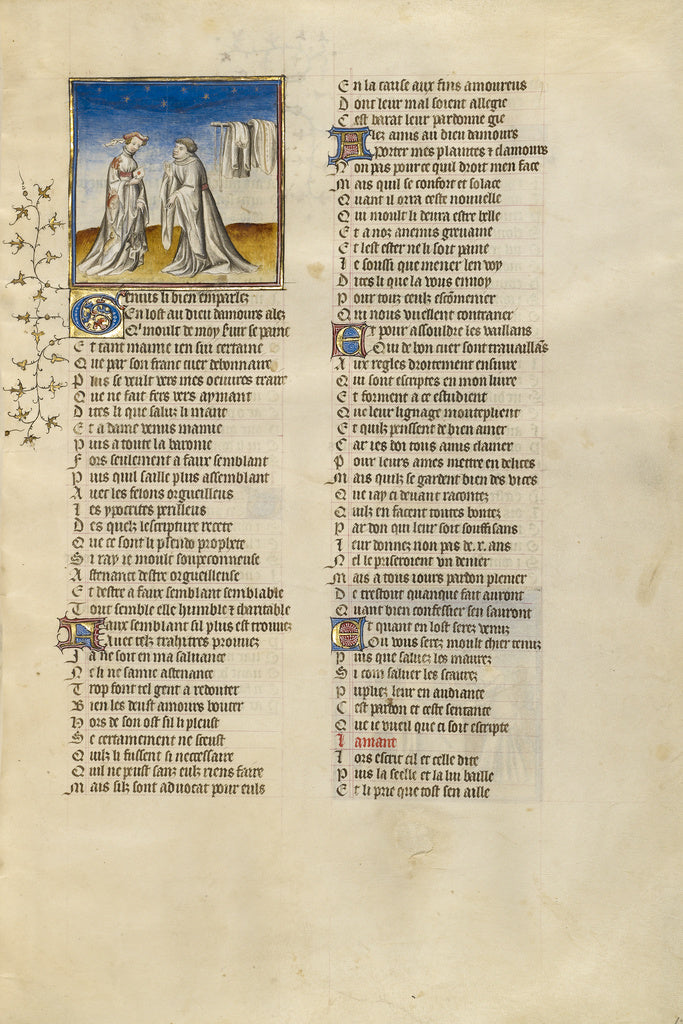 Genius li bien emparlez
En lost au dieu damours alez
Qui moult de moy seruir se paine
Et tant maime ien sui certaine
Que par son franc cuer debonnaire
Plus se veult vers mes oeuures traire
Que ne fait fers vers aymant
Dites li que saluz li mant
Et a dame venus mamie
Puis a toute la baronie
Fors seulement a faux semblant
Puis quil saille plus assemblant
Auec les felons orgueilleus
Les ypocrites perilleus
Des quelz lescripture recete
Que ce sont li pseudo prophete
Si ray ie moult soupeconneuse
Astenance destre orgueilleuse
Et destre a faux semblant semblable
Tout semble elle humble ⁊ charitable
Faux semblant sil plus est trouuez
Auec telz trahitres prouuez
Ja ne soit en ma saluance
Ne li ne samie astenance
Trop font tel gent a redouter
Bien les deust amours bouter
Hors de son ost sil li pleust
Se certainement ne sceust
Quilz li fussent si necessaire
Quil ne peust sanz eulz riens faire
Mais silz sont aduocat pour euls
En la cause aux fins amoureus
Dont leur mal soient allegie
Cest barat leur pardonne gie
Alez amis au dieu damours
Porter mes plaintes ⁊ clamours
Non pas pour ce quil droit men face
Mais quil se confort et solace
Quant il orra ceste nouuelle
Qui moult li deura estre belle
Et a noz anemis greuaine
Et lest ester ne li soit paine
Le soussi que mener len voy
Dites li que la vous enuoy
Pour touz ceulz escomenier
Qui nous vuellent contrarier
Et pour assouldre les vaillans
Qui de bon cuer sont trauaillans
Aux regles droitement ensiure
Qui sont escriptes en mon liure
Et forment a ce estudient
Que leur lignage monteplient
Et quilz penssent de bien amer
Car ies doi touz amis clamer
Pour leurs ames mettre en delices
Mais quilz se gardent bien des vices
Que iay ci deuant racontez
Quilz en facent toutes bontez
Pardon qui leur soit souffisans
Leur donnez non pas de .x. ans
Nel le priseroient vn denier
Mais a tous iours pardon plenier
De trestout quanque fait auront
Quant bien confessier sen sauront
Et quant en lost serez venuz
Ou vous serez moult chier tenuz
Puis que saluez les maurez
Si com saluer les scaurez
Pupliez leur en audiance
Cest pardon et ceste sentance
Que ie vueil que ci soit escripte
Lamant
Lors escrit cil et celle dite
Puis la seelle et la lui baille
Et li prie que tost sen aille